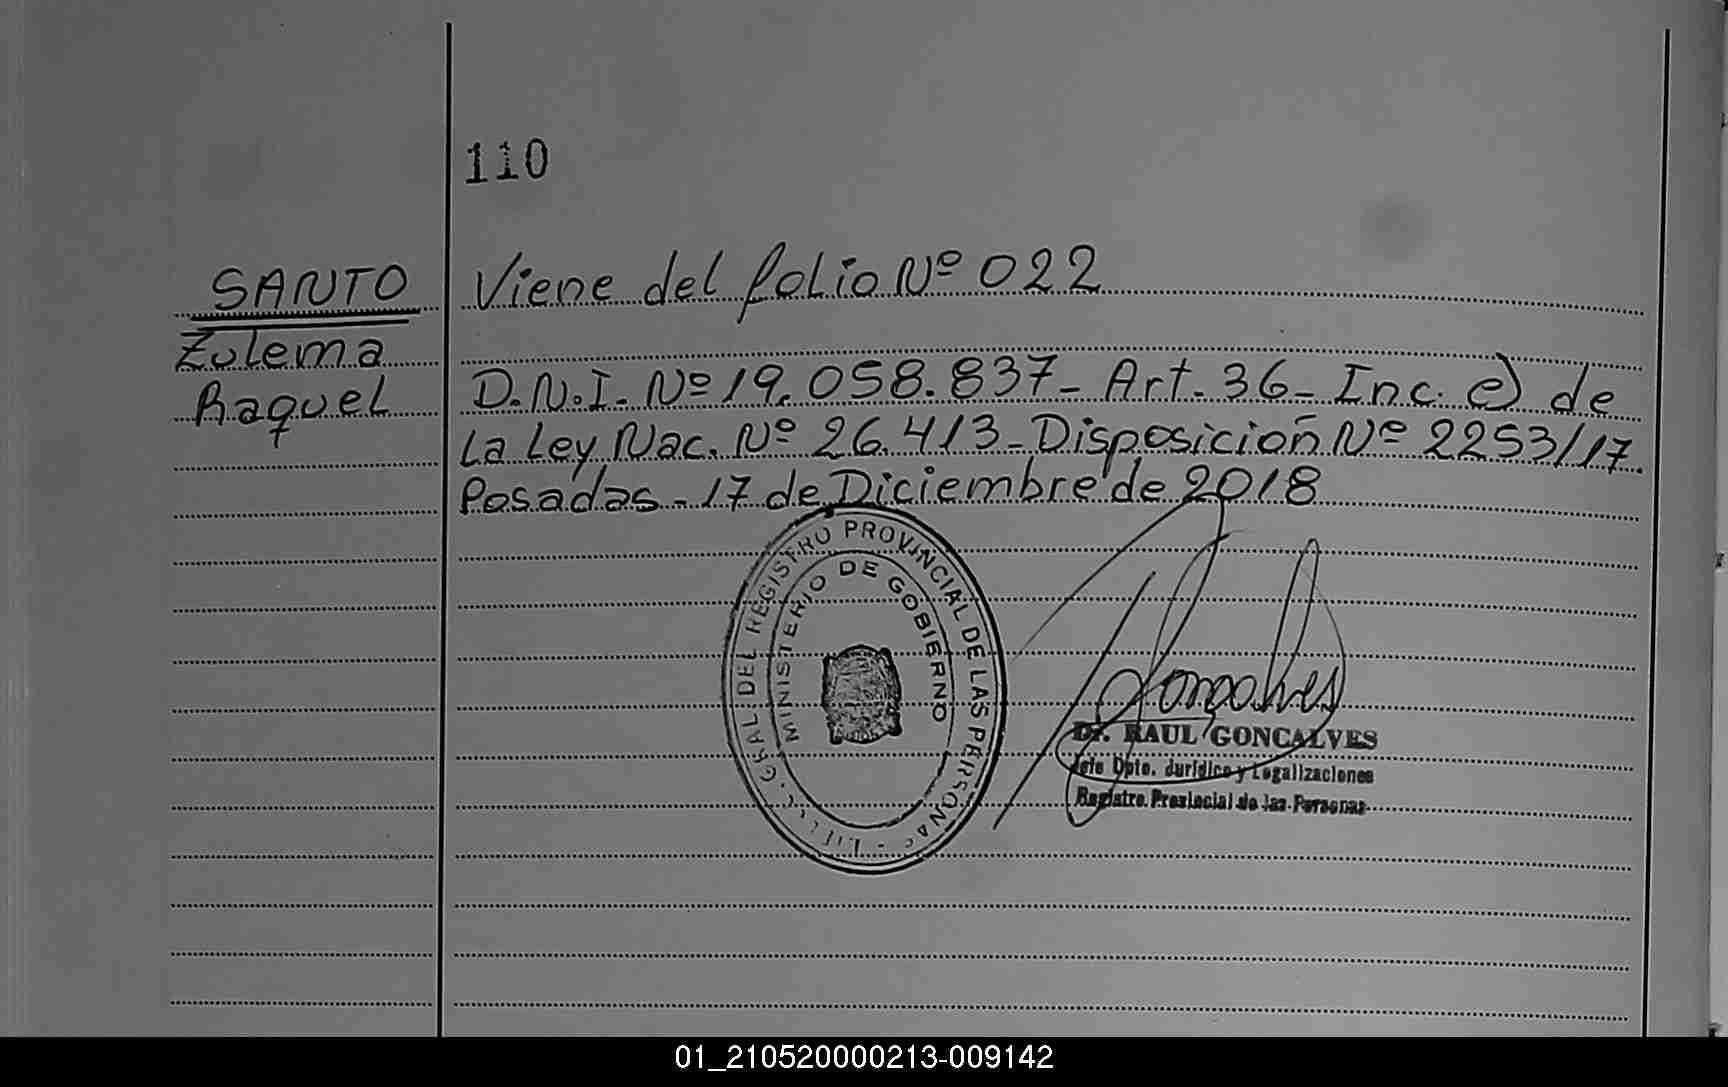 110
SANTO
Zulema
Raquel
Viene del folio Nº 022
D.N.I. Nº 19.058.837 - Art. 36 - Inc. e) de
la Ley Nac. Nº 26.413 - Disposición Nº 2253/17.
Posadas - 17 de Diciembre de 2018
GRAL. DEL REGISTRO PROVINCIAL DE LAS PERSONAS
MINISTERIO DE GOBIERNO
Gonçalves
Dr. RAUL GONCALVES
Jefe Dpto. Jurídico y Legalizaciones
Registro Provincial de las Personas
01_210520000213-009142